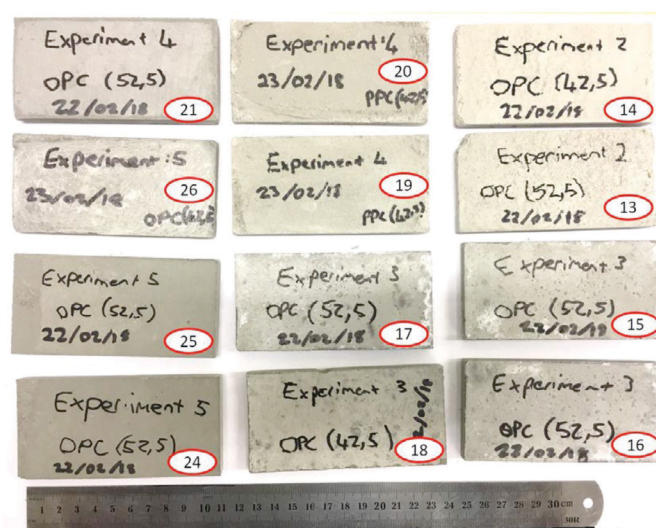 Experiment 4
OPC (52,5)
22/02/18
21
Experiment:4
23/02/18
20
PPC(42,5
Experiment 2
OPC (42,5)
22/02/18
14
Experiment:5
23/02/18
26
OPC(42,5)
Experiment 4
23/02/18
19
PPC(42,5)
Experiment 2
OPC (52,5)
22/02/18
13
Experiment 5
OPC (52,5)
22/02/18
25
Experiment 3
OPC (52,5)
22/02/18
17
Experiment 3
OPC (52,5)
22/02/18
15
Experiment 5
OPC (52,5)
22/02/18
24
Experiment 3
OPC (42,5)
18
Experiment 3
OPC (52,5)
22/02/18
16
1 2 3 4 5 6 7 8 9 10 11 12 13 14 15 16 17 18 19 20 21 22 23 24 25 26 27 28 29 30cm